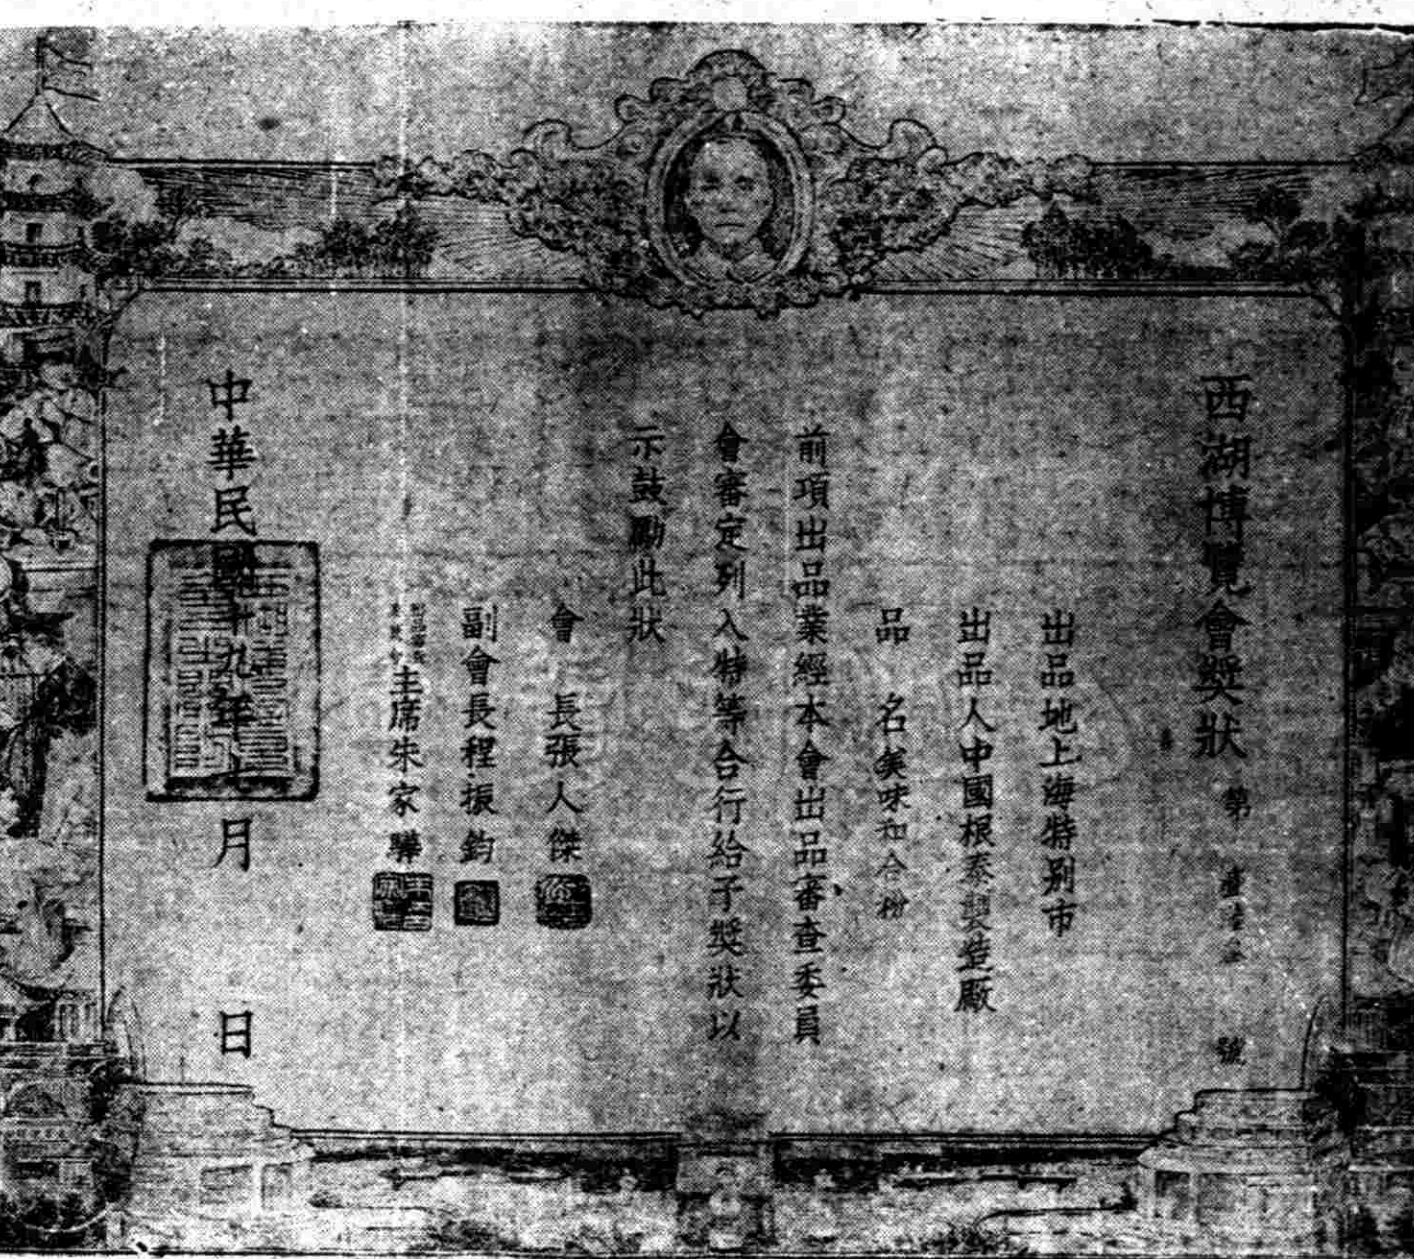 西湖博覽會獎狀 第 號
出品地上海特別市
出品人中國根泰製造廠
品 名美味和合粉
前項出品業經本會出品審查委員
會審定列入特等合行給予獎狀以
示鼓勵此狀
會 長張人傑
副會長程振鈞
主席朱家驊
中華民國十九年七月 日